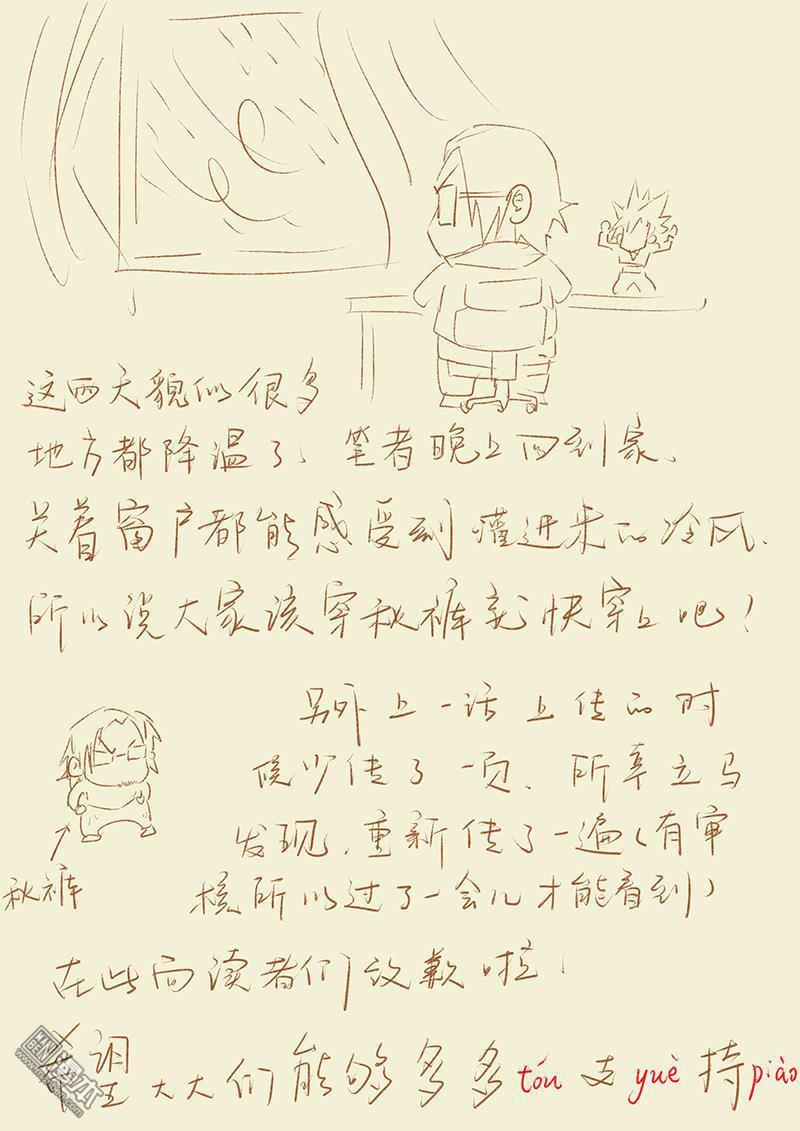 这两天貌似很多
地方都降温了、笔者晚上回到家、
关着窗户都能感受到灌进来的冷风.
所以说大家该穿秋裤就快穿上吧!
另外上一话上传的时
候少传了一页、所幸立马
发现、重新传了一遍(有审
核所以过了一会儿才能看到)
秋裤
在此向读者们致歉啦!
希望大大们能够多多tóu支yuè持piào